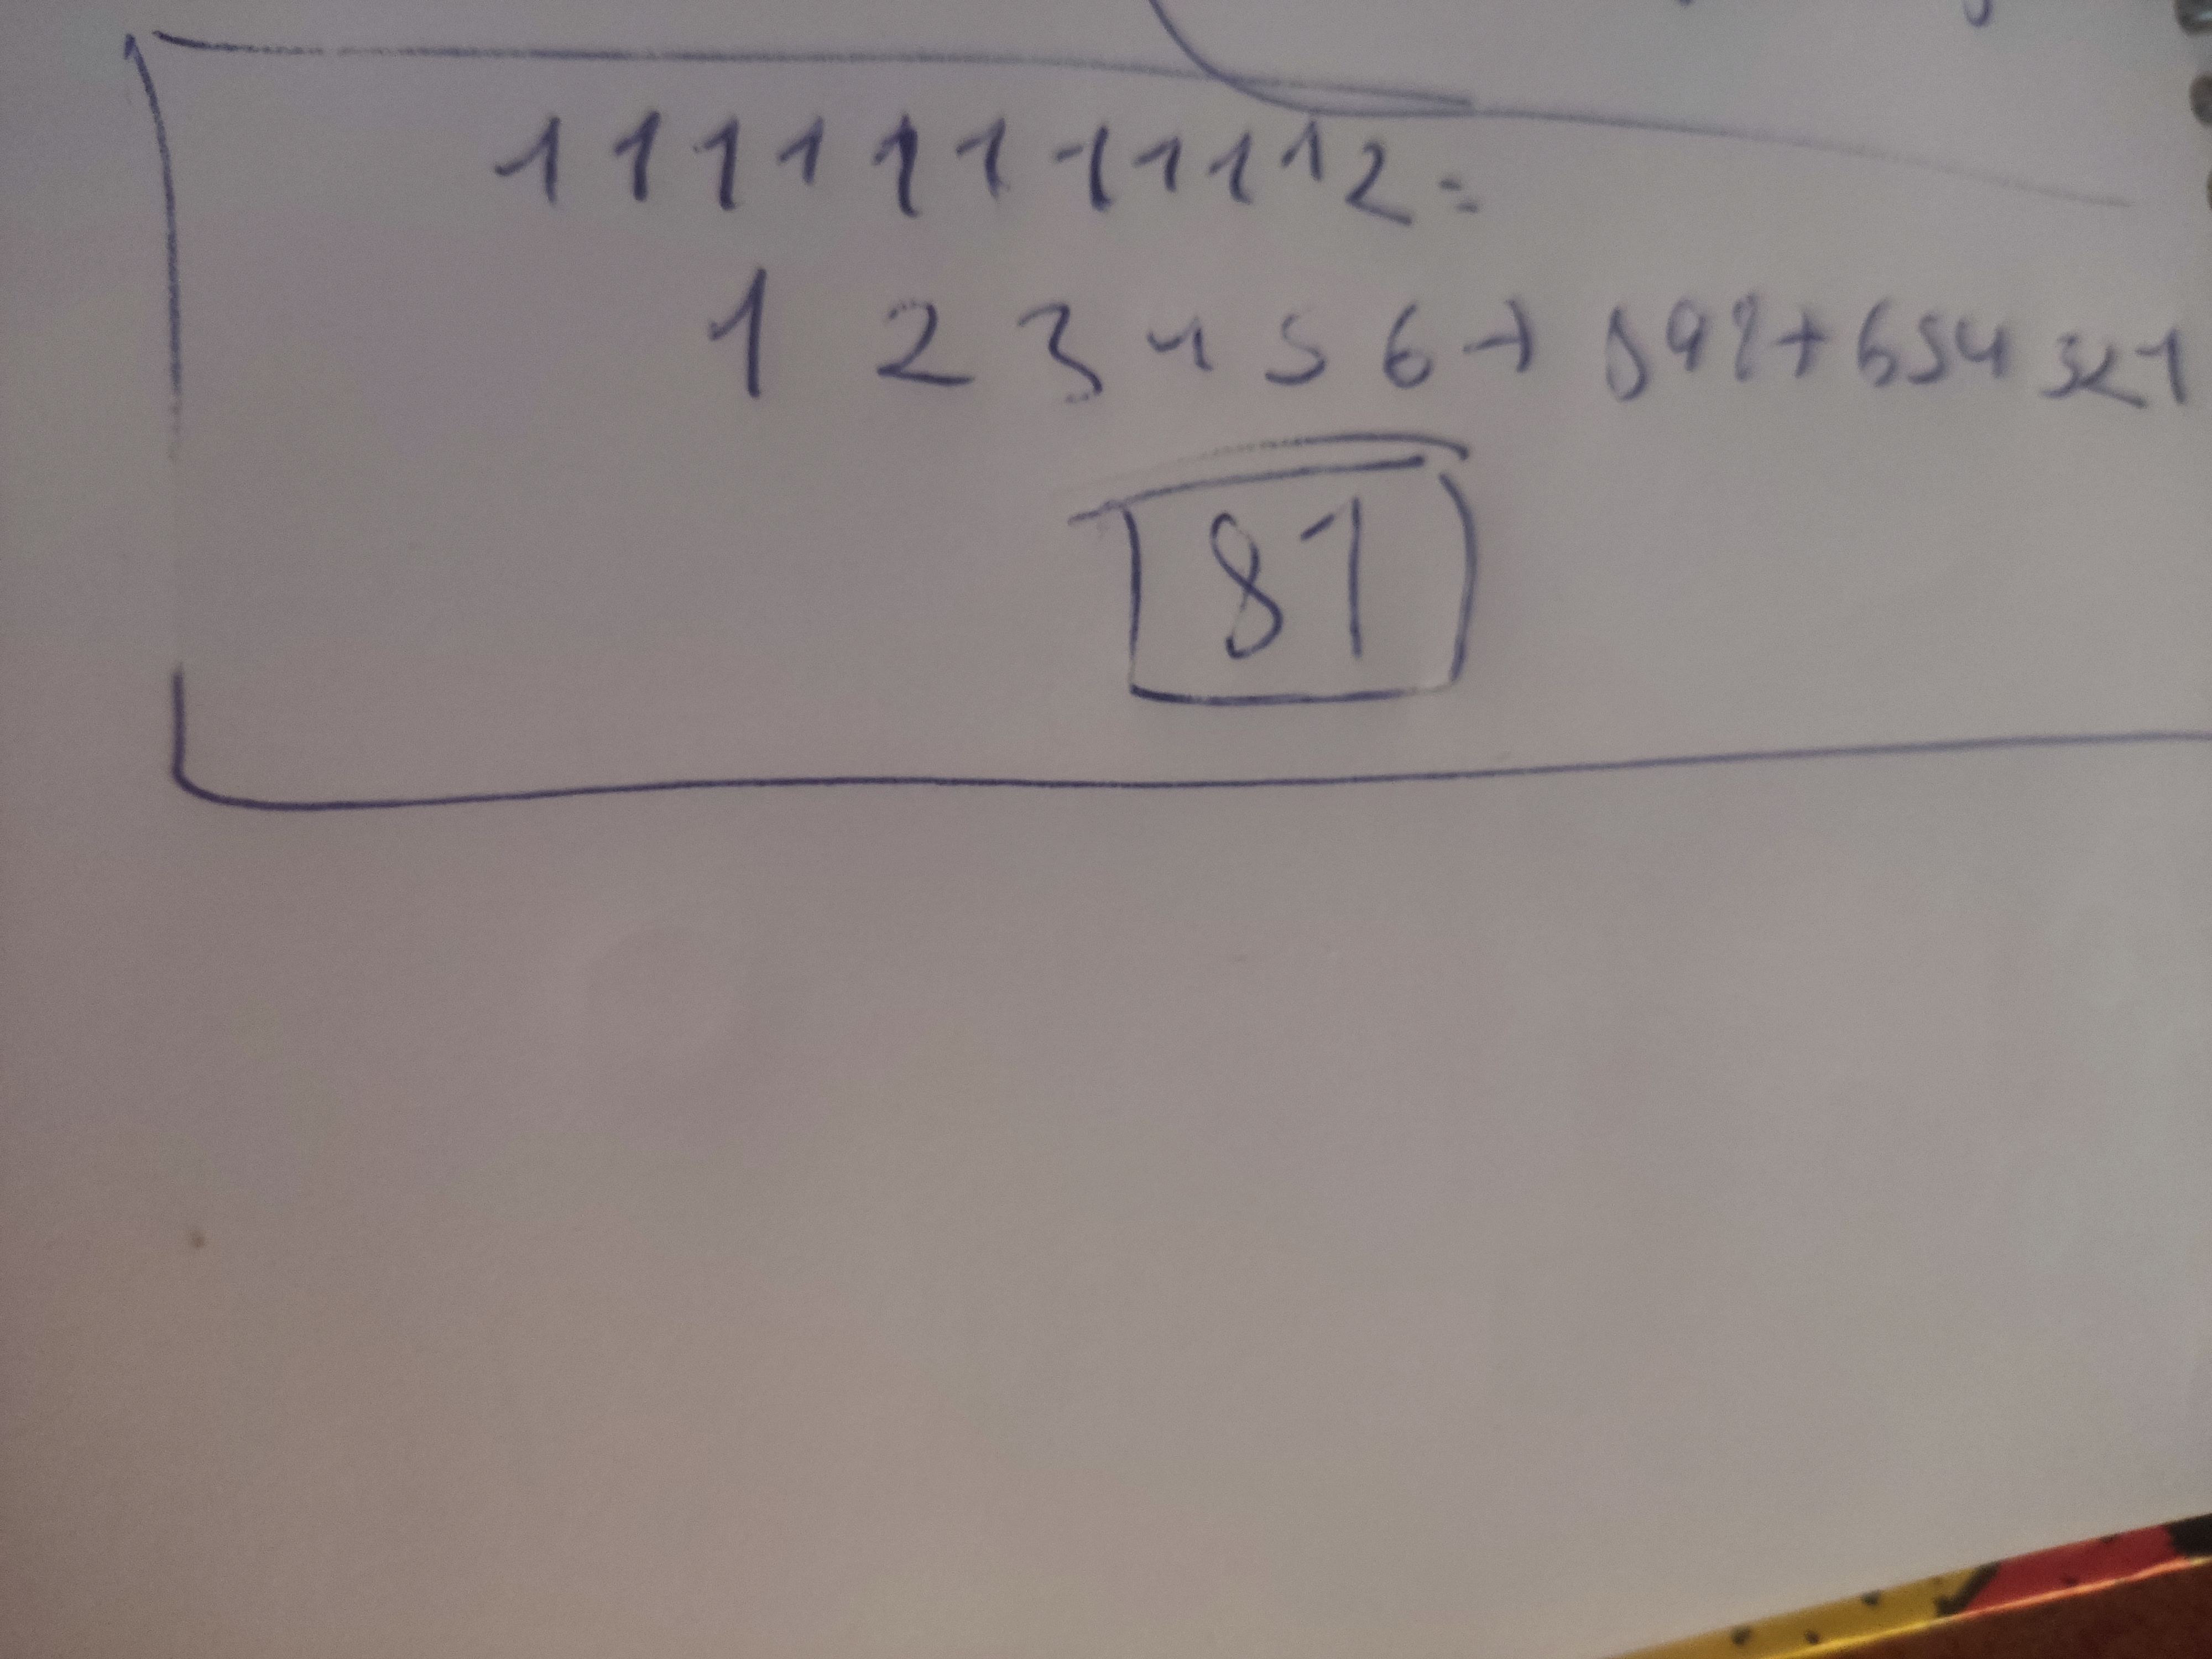 11111111112=
12345678987654321
81